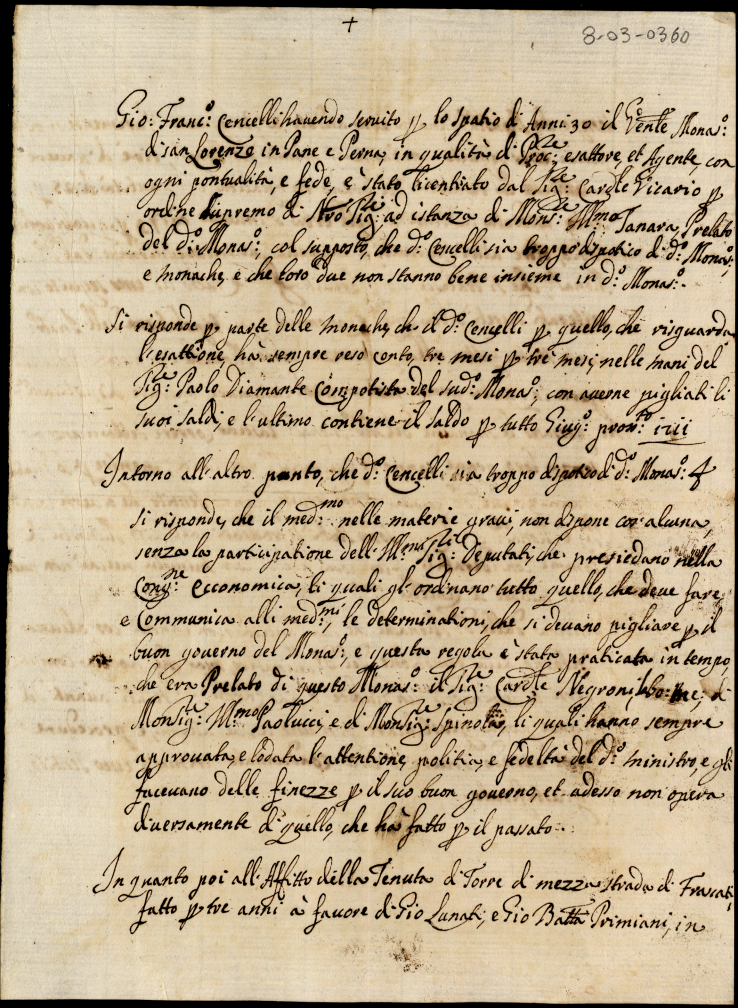 +
8-03-0360
Gio: Franc.o Cencelli havendo servito p lo spatio di Anni 30 il Ven:le Monas:o
di san Lorenzo in Pane e Perna, in qualità di Proc:re, esattore, et Agente, con
ogni pontualità, e fede, e stato licentiato dal Sig:re Cardle Vicario p
ordine supremo di Nro Sig:re ad istanza di Mons:re Ill:mo Tanara, Prelato
del d:o Monas:o, col supposto, che d:o Cencelli sia troppo dispotico di d:o Monas:o,
e monache, e che loro due non stanno bene insieme in d:o Monas:o.
Si risponde p parte delle monache, che il d:o Cencelli p quello, che risguarda
l'esattione hà sempre reso conto, tre mesi p tre mesi, nelle mani del
Sig:re Paolo Diamante Compotista del sud:o Monas:o, con averne pigliati li
suoi saldi, e l'ultimo contiene il saldo p tutto Giug:o pros:o 1711
Intorno all'altro punto, che d:o Cencelli sia troppo dispotico di d:o Monas:o
si risponde, che il med:mo nelle materie gravi, non dispone cos'alcuna,
senza la participatione dell'Ill:mi Sig:ri Deputati, che presiedano nella
Cong:ne economica, li quali gl'ordinano tutto quello, che deve fare,
e communica alli med:mi, le determinationi, che si devano pigliare p il
buon governo del Monas:o, e questa regola è stata praticata in tempo,
che era Prelato di questo Monas:o il Sig:re Cardle Negroni, bo: me:, di
Monsig:re Ill:mo Paolucci, e di Monsig:re Spinola, li quali hanno sempre
approvata, e lodata l'attentione, politia, e fedeltà del d:o ministro, e gli
facevano delle finezze p il suo buon governo, et adesso non opera
diversamente di quello, che hà fatto p il passato.
In quanto poi all'Affitto della Tenuta di Torre di mezza strada di Frascati,
fatto p tre anni à favore di Gio Lunati, e Gio Batta Primiani, in